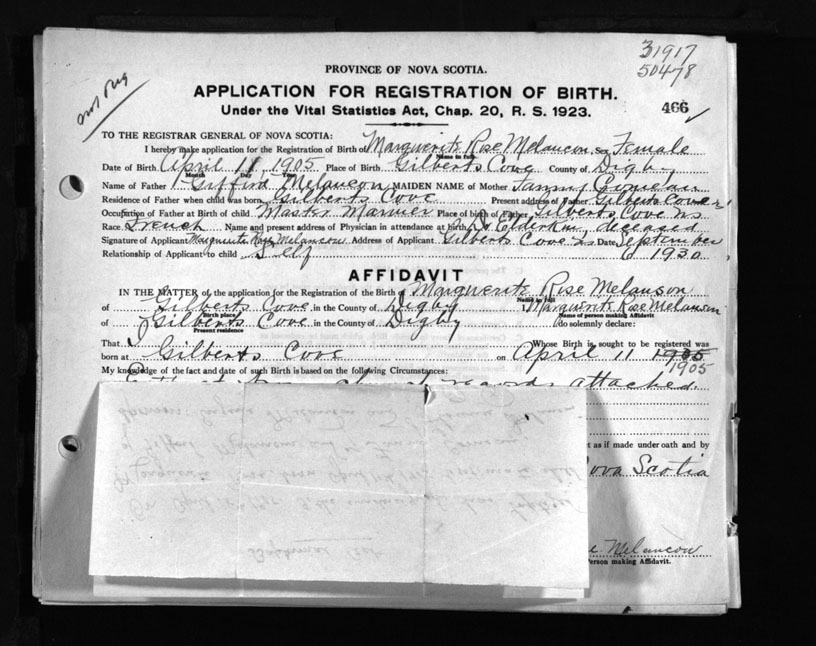 31917
50478
PROVINCE OF NOVA SCOTIA.
APPLICATION FOR REGISTRATION OF BIRTH.
Under the Vital Statistics Act, Chap. 20, R. S. 1923.
466
TO THE REGISTRAR GENERAL OF NOVA SCOTIA:
I hereby make application for the Registration of Birth of Marguerite Rose Melancon Sex Female
Name in full
Date of Birth April 11 1905 Place of Birth Gilberts Cove County of Digby
Month Day Year
Name of Father Melancon MAIDEN NAME of Mother
Residence of Father when child was born Gilberts Cove Present address of Father Gilberts Cove
Occupation of Father at Birth of child Master Mariner Place of birth of Father Gilberts Cove NS
Race French Name and present address of Physician in attendance at birth Dr Elderkin, deceased
Signature of Applicant Marguerite Rose Melancon Address of Applicant Gilberts Cove NS Date September
Relationship of Applicant to child Self 1930
AFFIDAVIT
IN THE MATTER of the application for the Registration of the Birth of Marguerite Rose Melanson
Name in full
of Gilberts Cove, in the County of Digby Marguerite Rose Melanson
Birth place Name of person making Affidavit
of Gilberts Cove in the County of Digby do solemnly declare:
Present residence
That I Whose Birth is sought to be registered was
born at Gilberts Cove on April 11 1905
1905
My knowledge of the fact and date of such Birth is based on the following Circumstances:
church records attached
t as if made under oath and by
Nova Scotia
Melancon
Person making Affidavit.